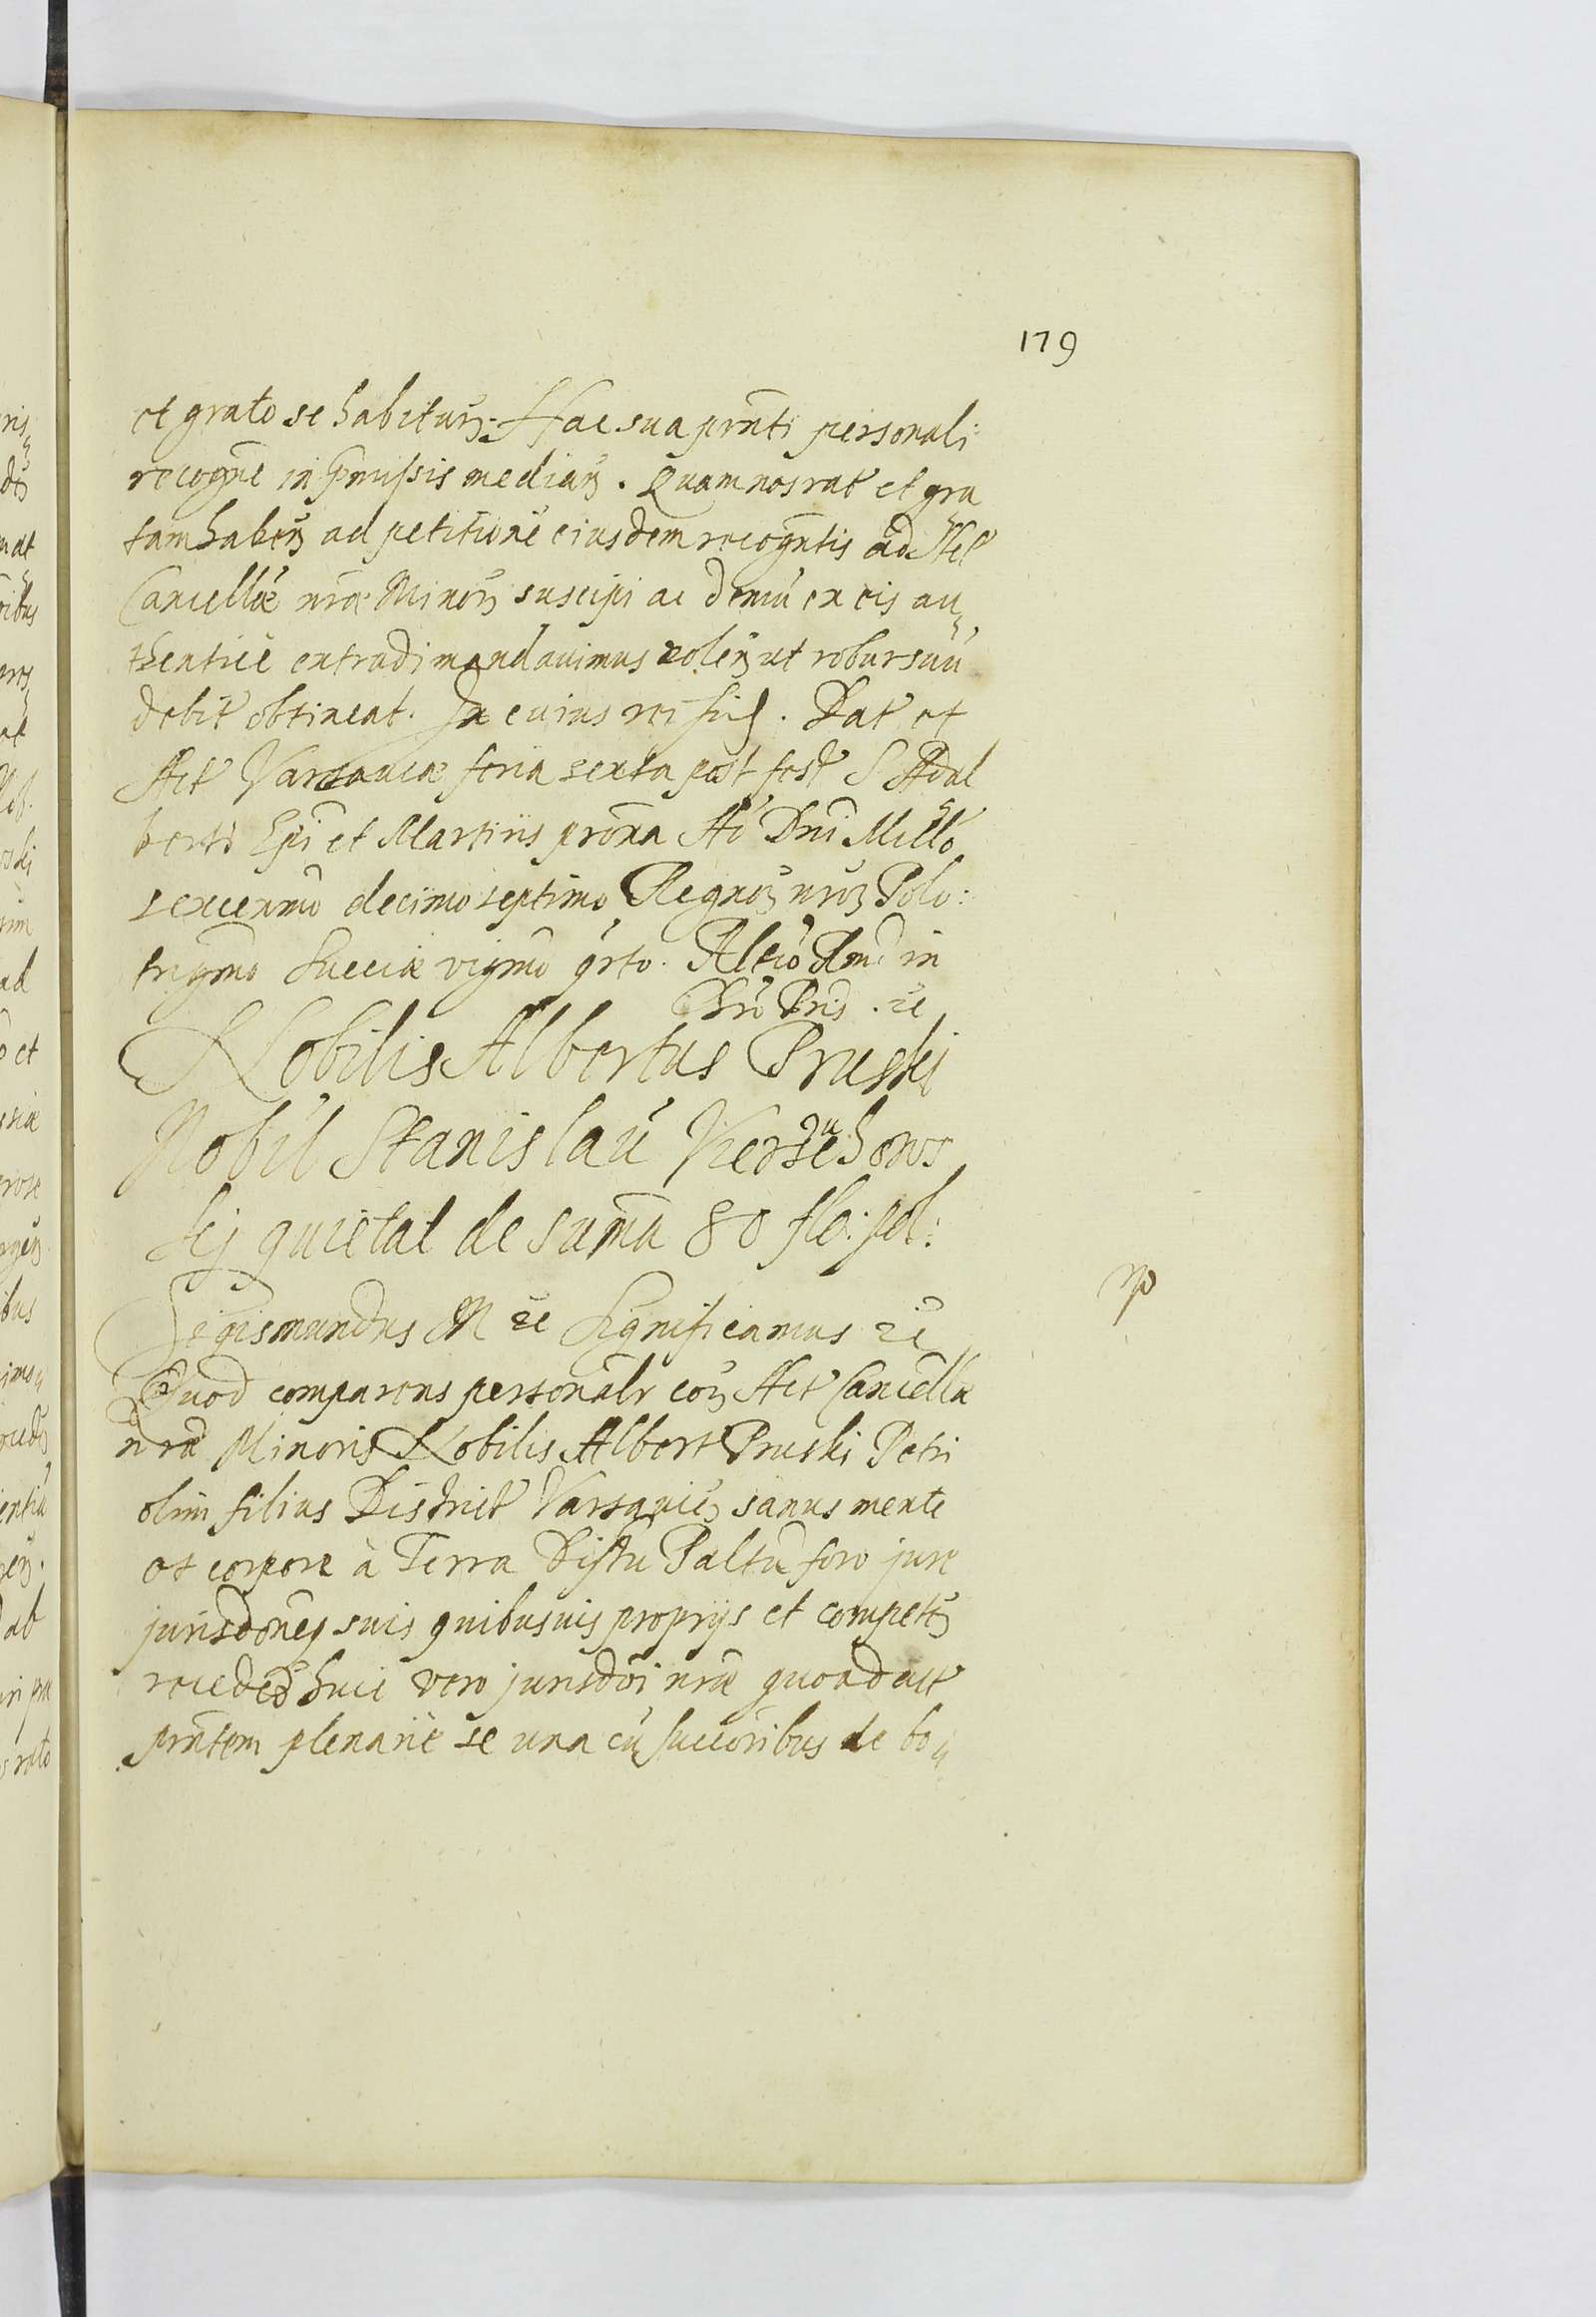 179
et grato se habitur; Hac sua prnti personali
recogne in Pmissis median. Quam nos rat et gra
tam haben ad petitione eiusdem recogntis ad Act
Cancellæ nræ Minor suscipi ac demu ex eis au
thentice extradi mandauimus volen ut robur suu
debit obtineat. In cuius rei fid. Dat et
Act Varsauiæ feria sexta post fest S Adal
berti Epi et Martiris proxa Ao Dni Millo
sexcenmo decimo septimo Regnor nror Polo:
trigmo Sueciæ vigmo qrto. Altio Rmd in
Chro Pris. ze
Nobilis Albertus Pruski
Nobil Stanislau Kierzu
skj quietat de sumu 80 flo: pol:
np
Sigismundus R ze Significamus ze
Quod comparens personalr cor Act Cancella
nræ Minoris Nobilis Albert Pruski Petri
olim filius District Varsauien sanus mente
et corpore à Terra Distu Paltu foro jure
jurisdoneq suis quibusuis proprijs et competen
receded huic vero jurisdoi nræ quoad act
prntem plenarie se una cu succoribus de bo